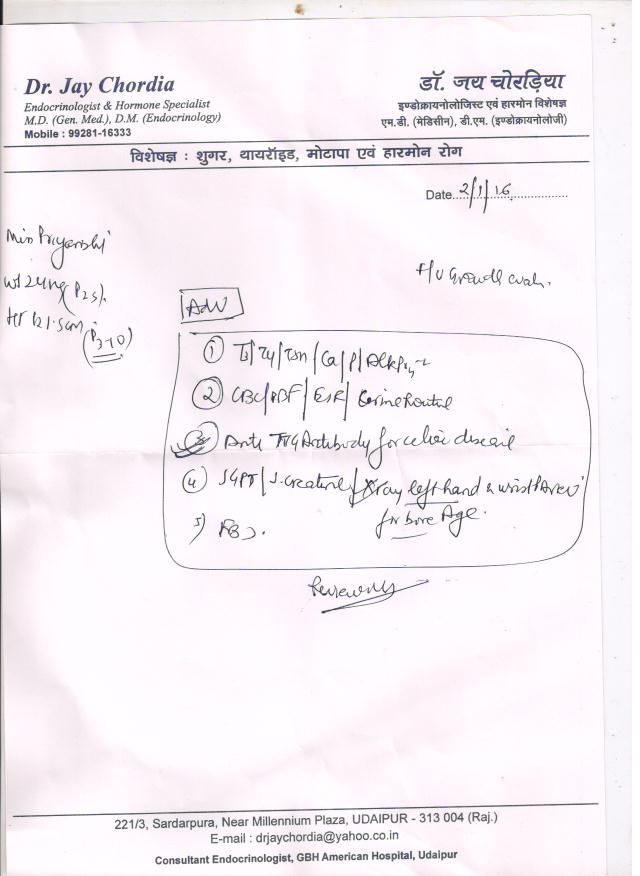 Dr. Jay Chordia
Endocrinologist & Hormone Specialist
M.D. (Gen. Med.), D.M. (Endocrinology)
Mobile : 99281-16333
डॉ. जय चोरड़िया
इण्डोक्रायनोलोजिस्ट एवं हारमोन विशेषज्ञ
एम.डी. (मेडिसीन), डी.एम. (इण्डोक्रायनोलोजी)
विशेषज्ञ : शुगर, थायरॉइड, मोटापा एवं हारमोन रोग
Date 2/1/16
Miss Priyanshi
wt 24kg (P25).
Ht 121.5cm
(P3-10)
F/U Growth evaln.
Adv
① T3/T4/TSH/Ca/P/AlkP
② CBC/PBF/ESR/Urine Routine
③ Anti TTG Antibody for celiac disease
④ SGPT/S.creatinine/Xray left hand & wrist
for bone Age.
5) FBS.
221/3, Sardarpura, Near Millennium Plaza, UDAIPUR - 313 004 (Raj.)
E-mail : drjaychordia@yahoo.co.in
Consultant Endocrinologist, GBH American Hospital, Udaipur